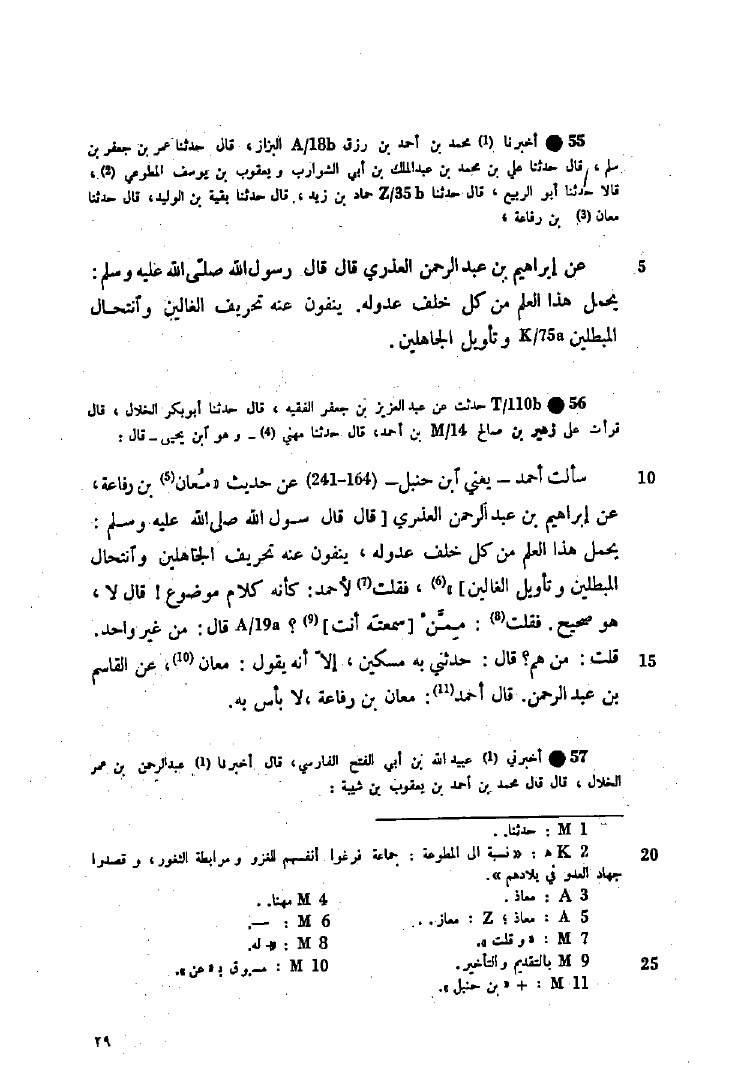 55 ● أخبرنا (1) محمد بن أحمد بن رزق A/18b البزاز، قال حدثنا عمر بن جعفر بن
سلم، قال حدثنا علي بن محمد بن عبدالملك بن أبي الشوارب و يعقوب بن يوسف المطوعي (2)،
قالا حدثنا أبو الربيع، قال حدثنا Z/35 b حماد بن زيد، قال حدثنا بقية بن الوليد، قال حدثنا
معان (3) بن رفاعة،
5 عن إبراهيم بن عبد الرحمن العذري قال قال رسول الله صلّى الله عليه و سلم:
يحمل هذا العلم من كل خلف عدوله. ينفون عنه تحريف الغالين وٱنتحال
المبطلين K/75a و تأويل الجاهلين.
56 ● T/110b حدثت عن عبد العزيز بن جعفر الفقيه، قال حدثنا أبوبكر الخلال، قال
قرأت على زهير بن صالح M/14 بن أحمد، قال حدثنا مهني (4) ـ و هو ٱبن يحيى ـ قال:
10 سألت أحمد – يعني ٱبن حنبل – (164-241) عن حديث «مُعان(5) بن رفاعة،
عن إبراهيم بن عبد الرحمن العذري [قال قال سـول الله صلى الله عليه و سلم:
يحمل هذا العلم من كل خلف عدوله، ينفون عنه تحريف الجاهلين وٱنتحال
المبطلين و تأويل الغالين]»(6)، فقلت(7) لأحمد: كأنه كلام موضوع! قال لا،
هو صحيح. فقلت(8): ممَّنْ [سمعتَه أنت](9)؟ A/19a قال: من غير واحد.
15 قلت: من هم؟ قال: حدثني به مسكين، إلاّ أنه يقول: معان(10)، عن القاسم
بن عبد الرحمن. قال أحمد(11): معان بن رفاعة، لا بأس به.
57 ● أخبرني (1) عبيد الله بن أبي الفتح الفارسي، قال أخبرنا (1) عبدالرحمن بن عمر
الخلال، قال قال محمد بن أحمد بن يعقوب بن شيبة:
1 M: حدثنا..
20 2 K ه: «نسبة الى المطوعة: جماعة فرغوا أنفسهم للغزو و مرابطة الثغور، و قصدوا
جهاد العدو في بلادهم».
3 A: معاذ. 4 M مهنا..
5 A: معاذ؛ Z: معاز.. 6 M: —.
7 M: «و قلت». 8 M: +« له.
25 9 M بالتقديم و التأخير. 10 M: مسبوق بـ «عن».
11 M: + «بن حنبل».
٢٩